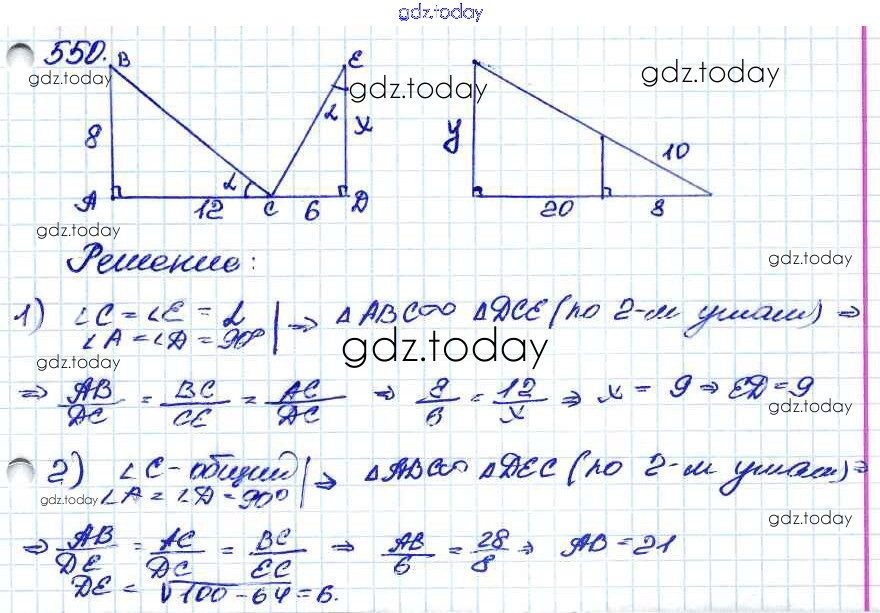 gdz.today
550.
gdz.today
B
E
gdz.today
gdz.today
8
α
x
y
10
α
A
12
C
6
D
20
8
gdz.today
Решение:
gdz.today
1) ∠C = ∠E = α | ⇒ △ABC∾ △DCE (по 2-м углам) ⇒
∠A = ∠D = 90°
gdz.today
gdz.today
⇒ AB/DC = BC/CE = AC/DC ⇒ 8/6 = 12/x ⇒ x = 9 ⇒ ED = 9
gdz.today
2) ∠C - общий | ⇒ △ABC∾ △DEC (по 2-м углам) ⇒
gdz.today ∠A = ∠D = 90°
gdz.today
⇒ AB/DE = AC/DC = BC/EC ⇒ AB/6 = 28/8 ⇒ AB = 21
DE = √100 - 64 = 6.